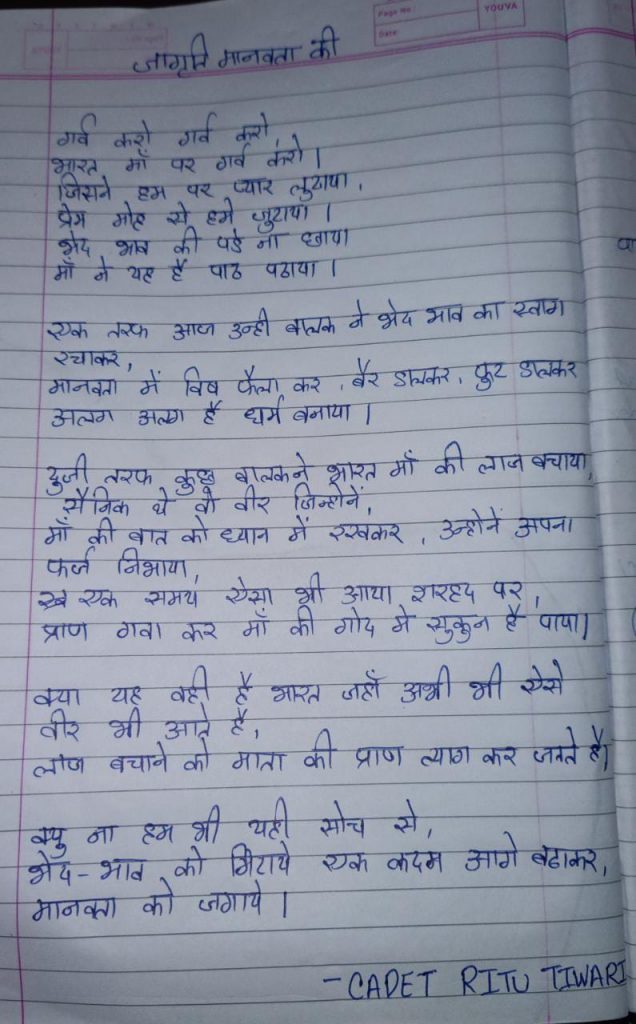 Page No
Date
YOUVA
जागृति मानवता की
गर्व करो गर्व करो,
भारत माँ पर गर्व करो।
जिसने हम पर प्यार लुटाया,
प्रेम मोह से हमे जुटाया।
भेद भाव की पडे ना छाया
माँ ने यह है पाठ पढाया।
एक तरफ आज उन्ही बालक ने भेद भाव का स्वाग
रचाकर,
मानवता में विष फैला कर, बैर डालकर, फुट डालकर
अलग अलग है धर्म बनाया।
दुजी तरफ कुछ बालकने भारत माँ की लाज बचाया,
सैनिक थे वो वीर जिन्होनें,
माँ की बात को ध्यान में रखकर, उन्होनें अपना
फर्ज निभाया,
एक समय ऐसा भी आया शरहद पर,
प्राण गवा कर माँ की गोद मे सुकुन है पाया।
क्या यह वही है भारत जहाँ अभी भी ऐसे
वीर भी आते है,
लाज बचाने को माता की प्राण त्याग कर जाते है।
क्यु ना हम भी यही सोच से,
भेद-भाव को मिटाये एक कदम आगे बढाकर,
मानवता को जगाये।
-CADET RITU TIWARI